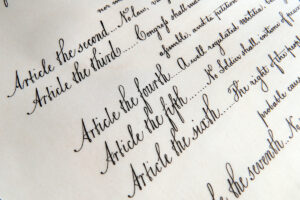 Article the second... No law, va
Article the third...... Congress shall make
assemble, and to petition
Article the fourth... A well regulated militia, be
Article the fifth...... No Soldier shall, in time of peace
Article the sixth...... The right of the people
probable cause
the seventh... No